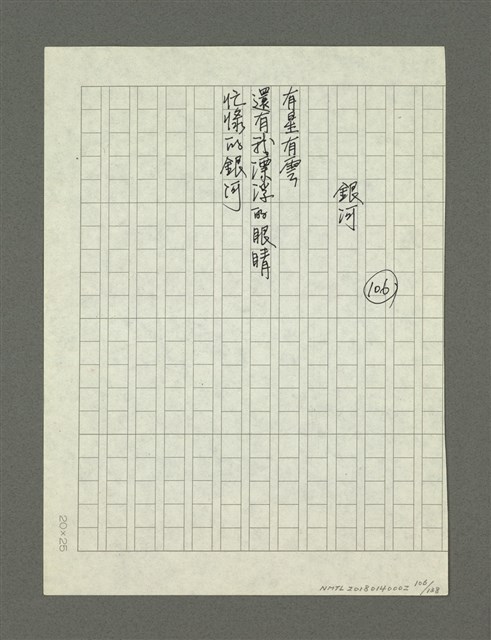 銀河
106
有星有雲
還有我漂浮的眼睛
忙懆的銀河
20×25
NMTL20180140002 106/128